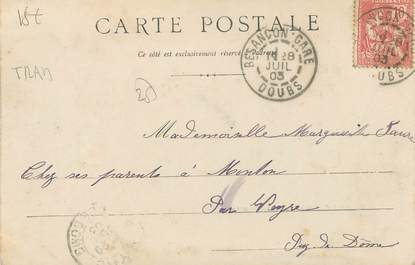 CARTE POSTALE
Ce côté est exclusivement réservé
TRAM
25
BESANÇON-GARE
28
JUIL
03
DOUBS
Mademoiselle Marguerite Faure
Chez ses parents à Monton
Par Veyre
Puy de Dôme